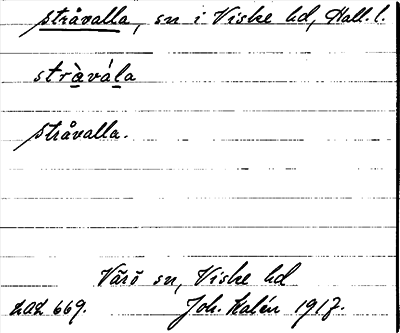 Stråvalla, sn i Viske hd, Hall. l.
stràvála
Stråvalla.
Värö sn, Viske hd
LAL 669. Joh. Kalén 1917.